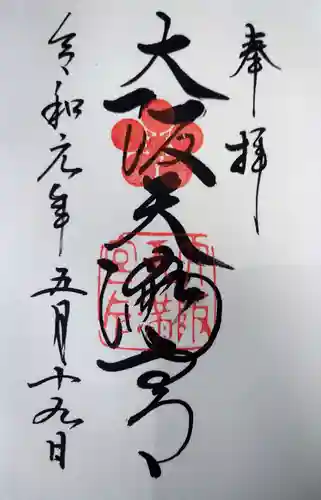 奉拝
大阪天満宮
令和元年五月十九日